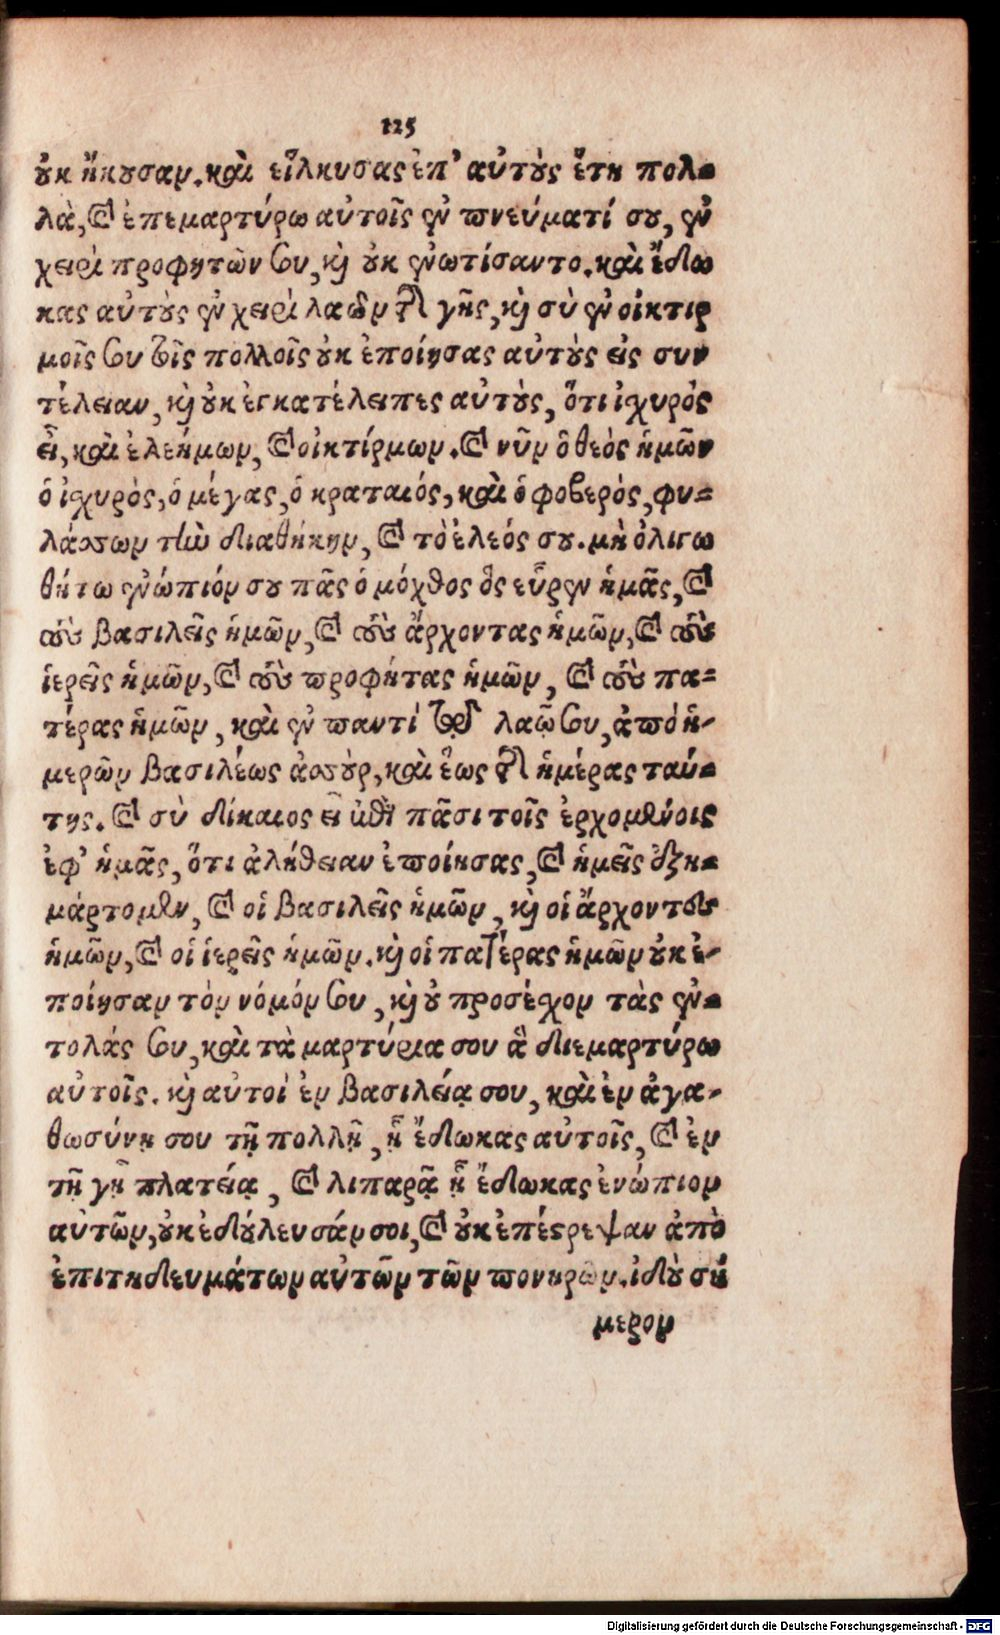 125
οὐκ ἤκουσαν. καὶ εἵλκυσας ἐπ' αὐτοὺς ἔτη πολ-
λὰ, καὶ ἐπεμαρτύρω αὐτοῖς ἐν πνεύματί σου, ἐν
χειρὶ προφητῶν σου, καὶ οὐκ ἐνωτίσαντο. καὶ ἔδω
κας αὐτοὺς ἐν χειρὶ λαῶν τῆς γῆς, καὶ σὺ ἐν οἰκτιρ
μοῖς σου τοῖς πολλοῖς οὐκ ἐποίησας αὐτοὺς εἰς συν
τέλειαν, καὶ οὐκ ἐγκατέλειπες αὐτοὺς, ὅτι ἰσχυρὸς
εἶ, καὶ ἐλεήμων, καὶ οἰκτίρμων. καὶ νῦν ὁ θεὸς ἡμῶν
ὁ ἰσχυρὸς, ὁ μέγας, ὁ κραταιός, καὶ ὁ φοβερὸς, φυ-
λάσσων τὴν διαθήκην, καὶ τὸ ἐλεός σου. μὴ ὀλιγω
θήτω ἐνώπιόν σου πᾶς ὁ μόχθος ὃς εὗρεν ἡμᾶς, καὶ
τοὺς βασιλεῖς ἡμῶν, καὶ τοὺς ἄρχοντας ἡμῶν, καὶ τοὺς
ἱερεῖς ἡμῶν, καὶ τοὺς προφήτας ἡμῶν, καὶ τοὺς πα-
τέρας ἡμῶν, καὶ ἐν παντὶ τῷ λαῷ σου, ἀπὸ ἡ-
μερῶν βασιλέως ἀσσοὺρ, καὶ ἕως τῆς ἡμέρας ταύ-
της. καὶ σὺ δίκαιος εἶ ἐπὶ πᾶσι τοῖς ἐρχομένοις
ἐφ' ἡμᾶς, ὅτι ἀλήθειαν ἐποίησας, καὶ ἡμεῖς ἐξη-
μάρτομεν, καὶ οἱ βασιλεῖς ἡμῶν, καὶ οἱ ἄρχοντες
ἡμῶν, καὶ οἱ ἱερεῖς ἡμῶν. καὶ οἱ πατέρας ἡμῶν οὐκ ἐ-
ποίησαν τὸν νόμόν σου, καὶ οὐ προσέχον τὰς ἐν-
τολάς σου, καὶ τὰ μαρτύρια σου ἃ διεμαρτύρω
αὐτοῖς. καὶ αὐτοὶ ἐν βασιλείᾳ σου, καὶ ἐν ἀγα-
θωσύνῃ σου τῇ πολλῇ, ᾗ ἔδωκας αὐτοῖς, καὶ ἐν
τῇ γῇ πλατείᾳ, καὶ λιπαρᾷ ᾗ ἔδωκας ἐνώπιον
αὐτῶν, οὐκ ἐδούλευσάν σοι, καὶ οὐκ ἐπέστρεψαν ἀπὸ
ἐπιτηδευμάτων αὐτῶν τῶν πονηρῶν. ἰδοὺ σή
μερον
Digitalisierung gefördert durch die Deutsche Forschungsgemeinschaft - DFG